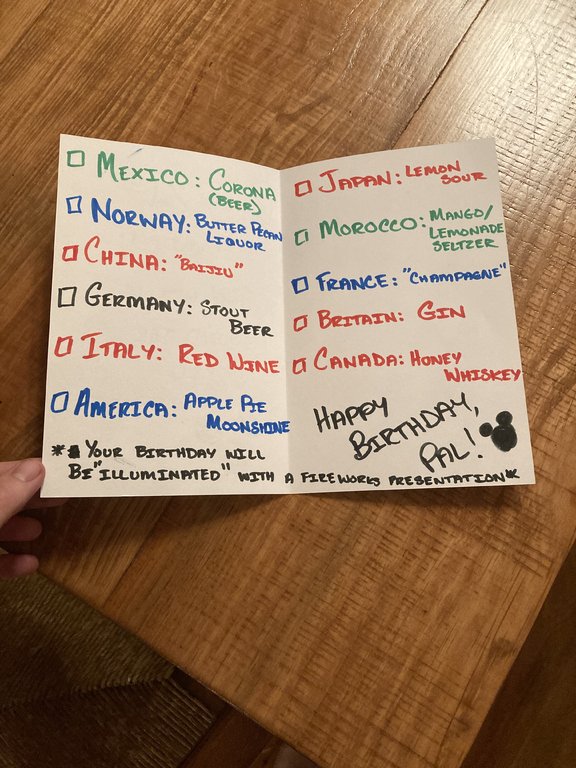 MEXICO: CORONA
(BEER)
NORWAY: BUTTER PECAN
LIQUOR
CHINA: "BAIJIU"
GERMANY: STOUT
BEER
ITALY: RED WINE
AMERICA: APPLE PIE
MOONSHINE
JAPAN: LEMON
SOUR
MOROCCO: MANGO/
LEMONADE
SELTZER
FRANCE: "CHAMPAGNE"
BRITAIN: GIN
CANADA: HONEY
WHISKEY
HAPPY
BIRTHDAY,
PAL!
* YOUR BIRTHDAY WILL
BE "ILLUMINATED" WITH A FIREWORKS PRESENTATION*